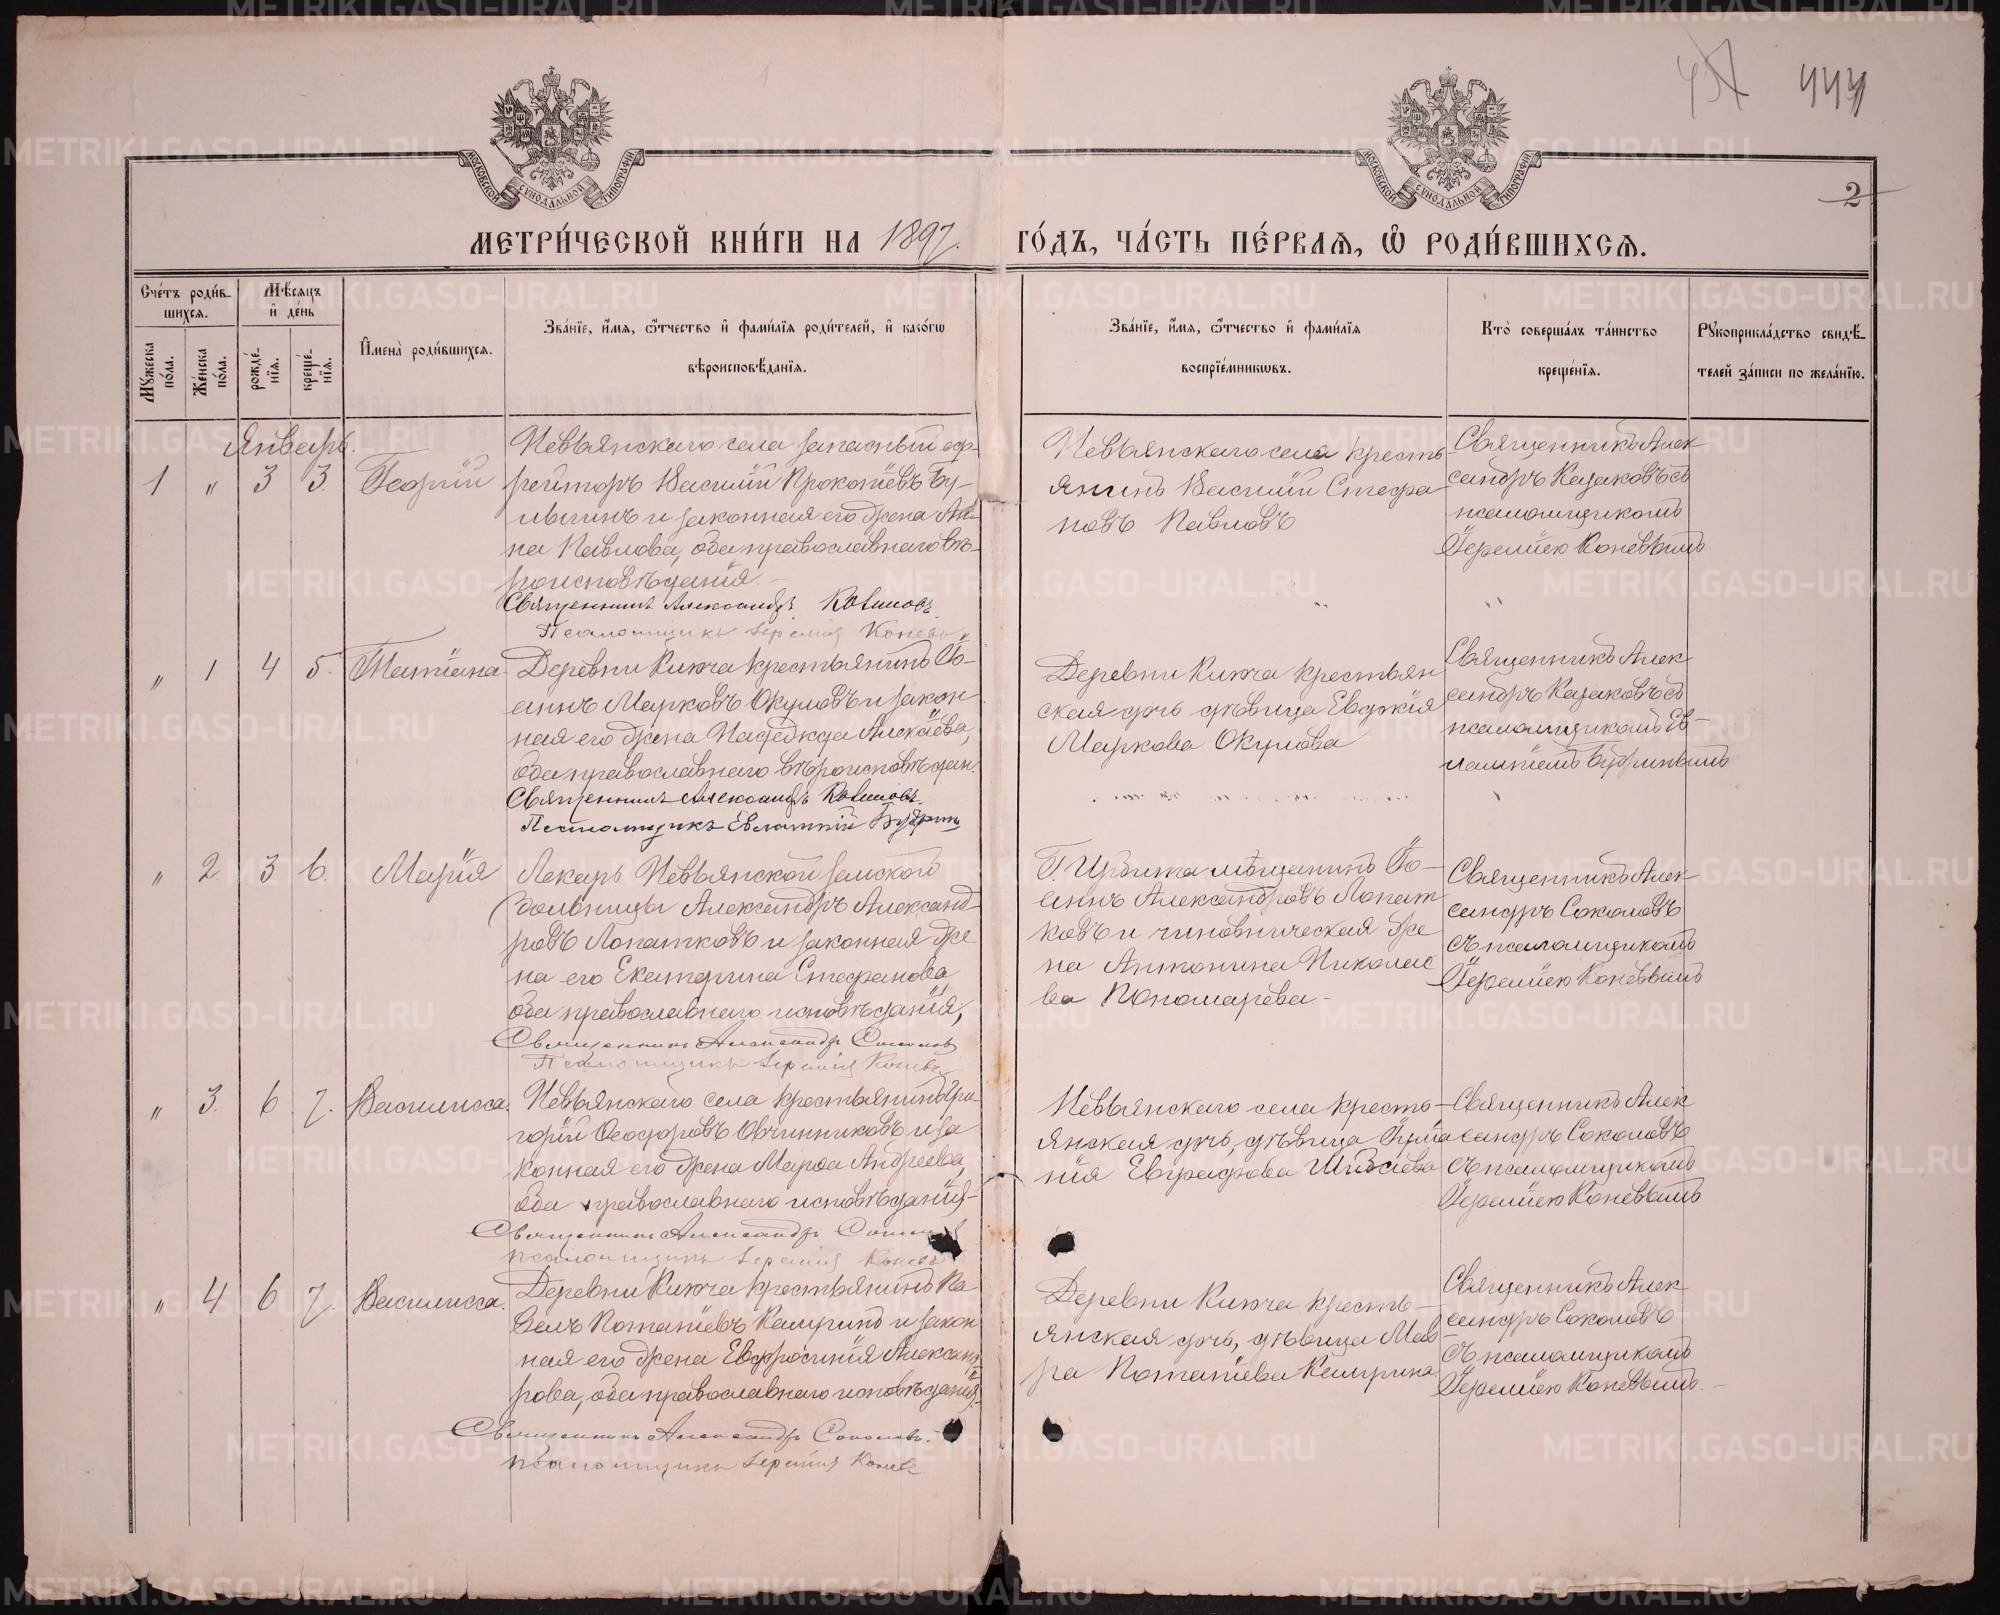 444
2
МОСКОВСКОЙ СѴНОДАЛЬНОЙ ТИПОГРАФІИ
МОСКОВСКОЙ СѴНОДАЛЬНОЙ ТИПОГРАФІИ
МЕТРИ́ЧЕСКОЙ КНИ́ГИ НА 1897. ГО́ДЪ, ЧА́СТЬ ПЕ́РВАѦ, Ѡ҆ РОДИ́ВШИХСѦ.
Сче́тъ роди́в-
шихсѧ.
Мꙋжеска по́ла.
Же́нска по́ла.
Мѣ́сѧцъ
и҆ де́нь
рожде́-
нїѧ.
креще́-
нїѧ.
И҆мена̀ роди́вшихсѧ.
Зва́нїе, и҆́мѧ, ѻ҆́тчество и҆ фами́лїѧ роди́телей, и҆ како́гѡ
вѣроисповѣ́данїѧ.
Зва́нїе, и҆́мѧ, ѻ҆́тчество и҆ фами́лїѧ
воспрїе́мникѡвъ.
Кто̀ соверша́лъ та́инство
креще́нїѧ.
Рꙋкоприкла́дство свидѣ́-
телей за́писи по жела́нїю.
Январь.
1 " 3 3. Георгій
Невьянскаго села запасный еф-
рейторъ Василій Прокопіевъ Бу-
и законная его жена Ан-
на Павлова, оба православнаго вѣ-
роисповѣданія. —
Священникъ Александръ Казаковъ.
Псаломщикъ Іеремія Коневъ
Невьянскаго села кресть-
янинъ Василій Стефа-
новъ Павловъ
Священникъ Алек-
сандръ Казаковъ съ
псаломщикомъ
Іереміею Коневымъ
" 1 4 5. Татіана
Деревни Ключа крестьянинъ Іо-
аннъ Марковъ Окуловъ и закон
ная его жена Надежда Алексѣева,
оба православнаго вѣроисповѣдан.
Священникъ Александръ Казаковъ.
Псаломщикъ Евлампій Будринъ
Деревни Ключа крестьян
ская дчь дѣвица Евдокія
Маркова Окулова
Священникъ Алек
сандръ Казаковъ съ
псаломщикомъ Ев-
лампіемъ Будринымъ
" 2 3 6. Марія
Лекарь Невьянской земской
больницы Александръ Александ-
ровъ Лопатковъ и законная же
на его Екатерина Стефанова
оба православнаго исповѣданія,
Священникъ Александръ Соколовъ
Псаломщикъ Іеремія Коневъ
Г. Ирбита мѣщанинъ Іо-
аннъ Александровъ Лопат
ковъ и чиновническая же
на Антонина Николае
ва Пономарева. —
Священникъ Алек-
сандръ Соколовъ
съ псаломщикомъ
Іереміею Коневымъ
" 3. 6. 7. Василисса.
Невьянскаго села крестьянинъ Гри-
горій Ѳеодоровъ Овчинниковъ и за
конная его жена Марѳа Андреева,
оба православнаго исповѣданія —
Священникъ Александръ
псаломщикъ Іеремія Коневъ
Невьянскаго села кресть-
янская дчь, дѣвица Іулiа
нія Евграфова
Священникъ Алек
сандръ Соколовъ
съ псаломщикомъ
Іереміею Коневымъ
" 4 6 7. Василисса.
Деревни Ключа крестьянинъ Па-
велъ Потапіевъ Камринъ и закон
ная его жена Евфросинія Александ-
рова, оба православнаго исповѣданія.
Священникъ Александръ Соколовъ.
псаломщикъ Іеремія Коневъ
Деревни Ключа кресть-
янская дчь, дѣвица Мав-
ра Потапіева Камрина.
Священникъ Алек
сандръ Соколовъ
съ псаломщикомъ
Іереміею Коневымъ. —
METRIKI.GASO-URAL.RU